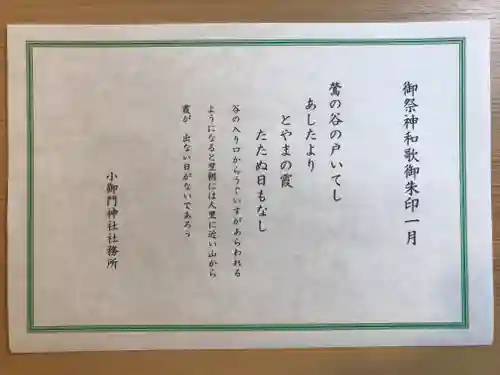 御祭神和歌御朱印一月
鶯の谷の戸いてし
あしたより
とやまの霞
たたぬ日もなし
谷の入り口からうぐいすがあらわれる
ようになると翌朝には人里に近い山から
霞が 出ない日がないであろう
小御門神社社務所